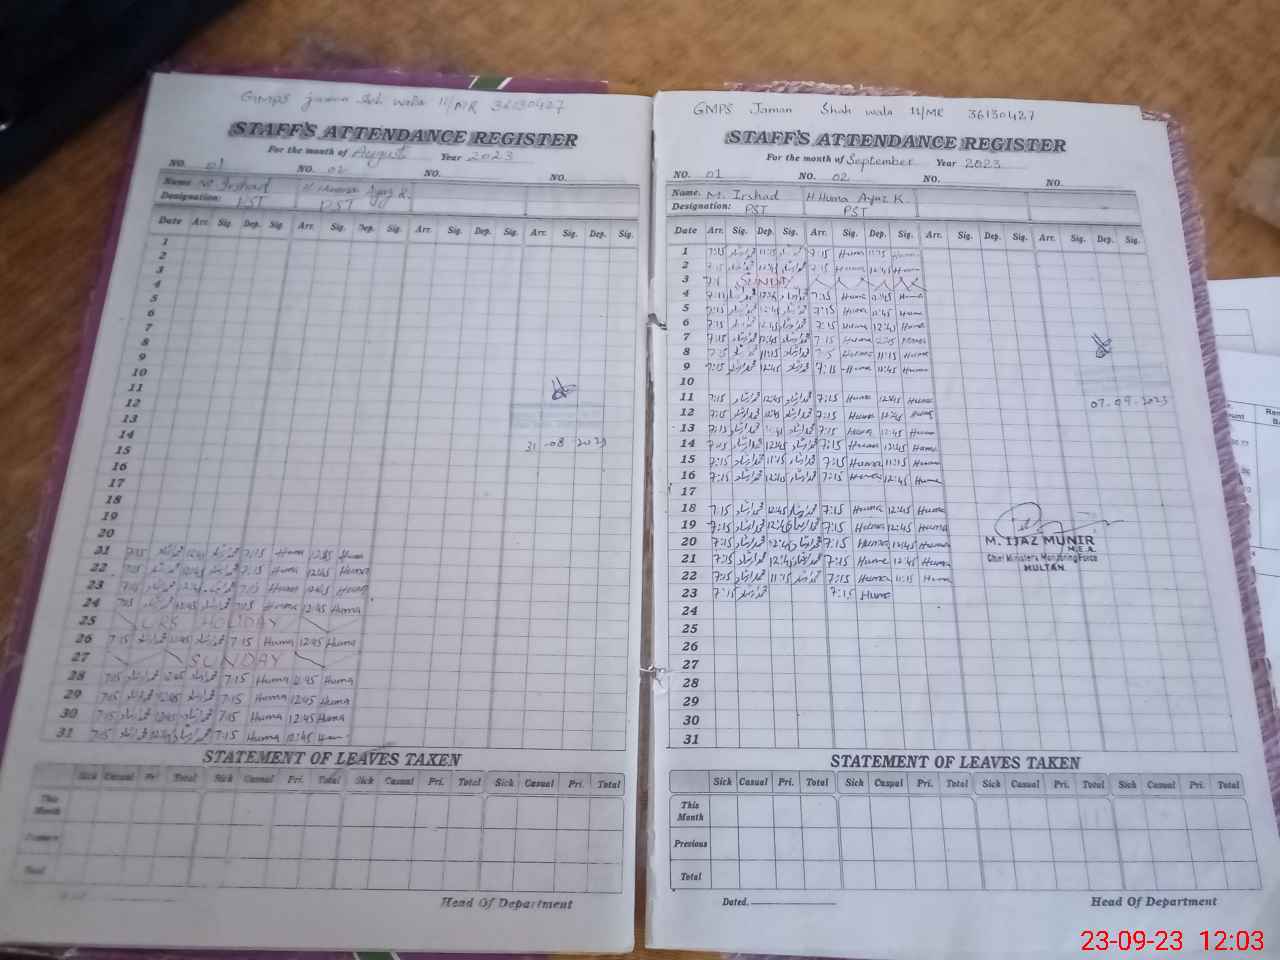 GMPS jaman Shah wala 11/MR 36130427
STAFF'S ATTENDANCE REGISTER
For the month of August Year 2023
NO. 01 NO. 02 NO. NO.
Name M. Irshad H Huma Ajaz K.
Designation: PST PST
Date Arr. Sig. Dep. Sig. Arr. Sig. Dep. Sig. Arr. Sig. Dep. Sig. Arr. Sig. Dep. Sig.
1
2
3
4
5
6
7
8
9
10
11
12
13
14
31-08-2023
15
16
17
18
19
20
21 7:15 محمد ارشاد 12:45 محمد ارشاد 7:15 Huma 12:45 Huma
22 7:15 محمد ارشاد 12:45 محمد ارشاد 7:15 Huma 12:45 Huma
23 7:15 محمد ارشاد 12:45 محمد ارشاد 7:15 Huma 12:45 Huma
24 7:15 محمد ارشاد 12:45 محمد ارشاد 7:15 Huma 12:45 Huma
25 URS HOLIDAY
26 7:15 محمد ارشاد 12:45 محمد ارشاد 7:15 Huma 12:45 Huma
27 SUNDAY
28 7:15 محمد ارشاد 12:45 محمد ارشاد 7:15 Huma 12:45 Huma
29 7:15 محمد ارشاد 12:45 محمد ارشاد 7:15 Huma 12:45 Huma
30 7:15 محمد ارشاد 12:45 محمد ارشاد 7:15 Huma 12:45 Huma
31 7:15 محمد ارشاد 12:45 محمد ارشاد 7:15 Huma 12:45
STATEMENT OF LEAVES TAKEN
Sick Casual Pri. Total Sick Casual Pri. Total Sick Casual Pri. Total Sick Casual Pri. Total
This Month
Total
Head Of Department
GMPS Jaman Shah wala 11/MR 36130427
STAFF'S ATTENDANCE REGISTER
For the month of September Year 2023
NO. 01 NO. 02 NO. NO.
Name. M. Irshad H Huma Ayaz K.
Designation: PST PST
Date Arr. Sig. Dep. Sig. Arr. Sig. Dep. Sig. Arr. Sig. Dep. Sig. Arr. Sig. Dep. Sig.
1 7:15 محمد ارشاد 11:15 محمد ارشاد 7:15 Huma 11:15 Huma
2 7:15 محمد ارشاد 12:45 محمد ارشاد 7:15 Huma 12:45 Huma
3 SUNDAY
4 7:15 محمد ارشاد 12:45 محمد ارشاد 7:15 Huma 12:45 Huma
5 7:15 محمد ارشاد 12:45 محمد ارشاد 7:15 Huma 12:45 Huma
6 7:15 محمد ارشاد 12:45 محمد ارشاد 7:15 Huma 12:45 Huma
7 7:15 محمد ارشاد 12:45 محمد ارشاد 7:15 Huma 12:45 Huma
8 7:15 محمد ارشاد 11:15 محمد ارشاد 7:15 Huma 11:15 Huma
9 7:15 محمد ارشاد 12:45 محمد ارشاد 7:15 Huma 12:45 Huma
10
11 7:15 محمد ارشاد 12:45 محمد ارشاد 7:15 Huma 12:45 Huma
07-09-2023
12 7:15 محمد ارشاد 12:45 محمد ارشاد 7:15 Huma 12:45 Huma
13 7:15 محمد ارشاد 12:45 محمد ارشاد 7:15 Huma 12:45 Huma
14 7:15 محمد ارشاد 12:45 محمد ارشاد 7:15 Huma 12:45 Huma
15 7:15 محمد ارشاد 11:15 محمد ارشاد 7:15 Huma 11:15 Huma
16 7:15 محمد ارشاد 12:45 محمد ارشاد 7:15 Huma 12:45 Huma
17
18 7:15 محمد ارشاد 12:45 محمد ارشاد 7:15 Huma 12:45 Huma
19 7:15 محمد ارشاد 12:45 محمد ارشاد 7:15 Huma 12:45 Huma
20 7:15 محمد ارشاد 12:45 محمد ارشاد 7:15 Huma 12:45 Huma
21 7:15 محمد ارشاد 12:45 محمد ارشاد 7:15 Huma 12:45 Huma
22 7:15 محمد ارشاد 11:15 محمد ارشاد 7:15 Huma 11:15 Huma
23 7:15 محمد ارشاد 7:15 Huma
M. IJAZ MUNIR
M.E.A.
Chief Minister's Monitoring Force
MULTAN.
24
25
26
27
28
29
30
31
STATEMENT OF LEAVES TAKEN
Sick Casual Pri. Total Sick Casual Pri. Total Sick Casual Pri. Total Sick Casual Pri. Total
This Month
Previous
Total
Dated.
Head Of Department
23-09-23 12:03